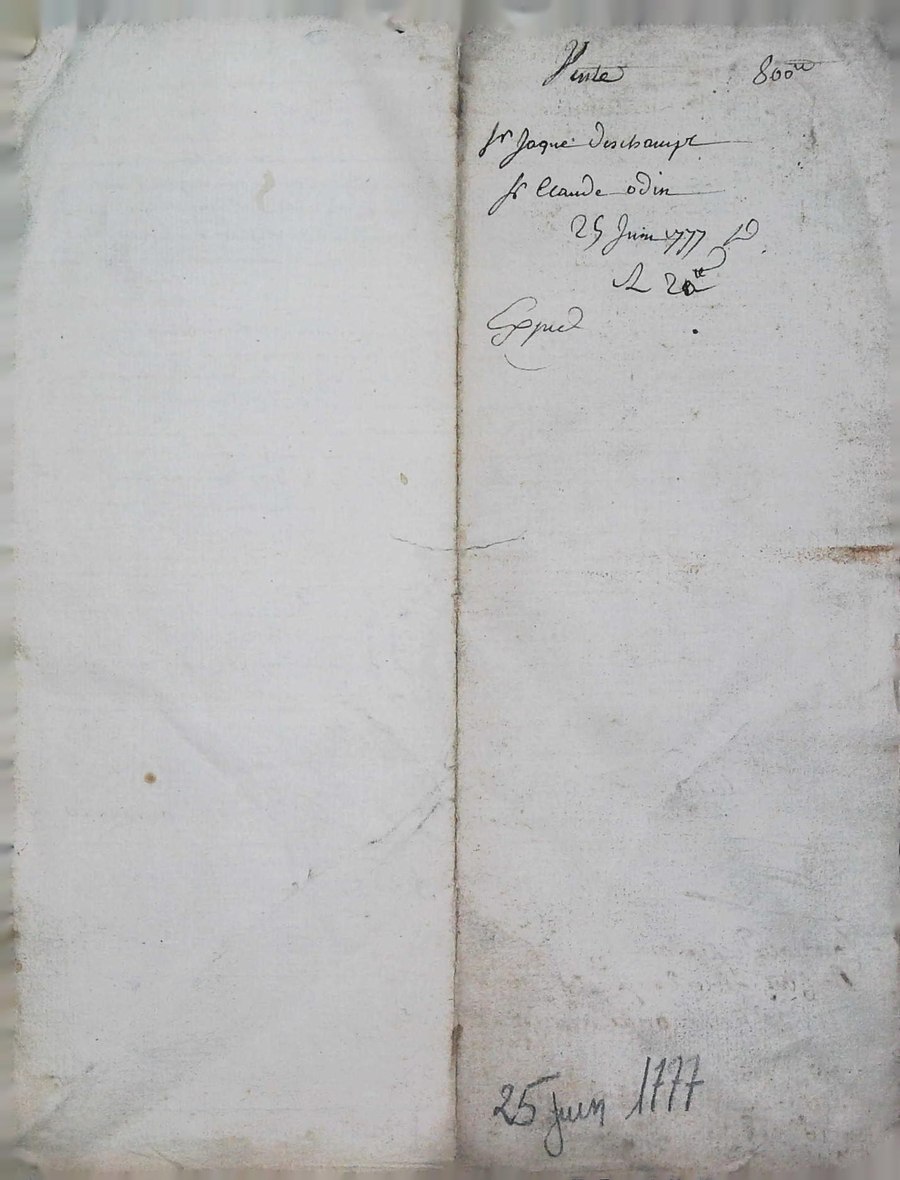 Vente 800tt
Sr Jaque Deschamps
Sr Claude odin
25 Juin 1777
R 20tt
Exped
25 juin 1777